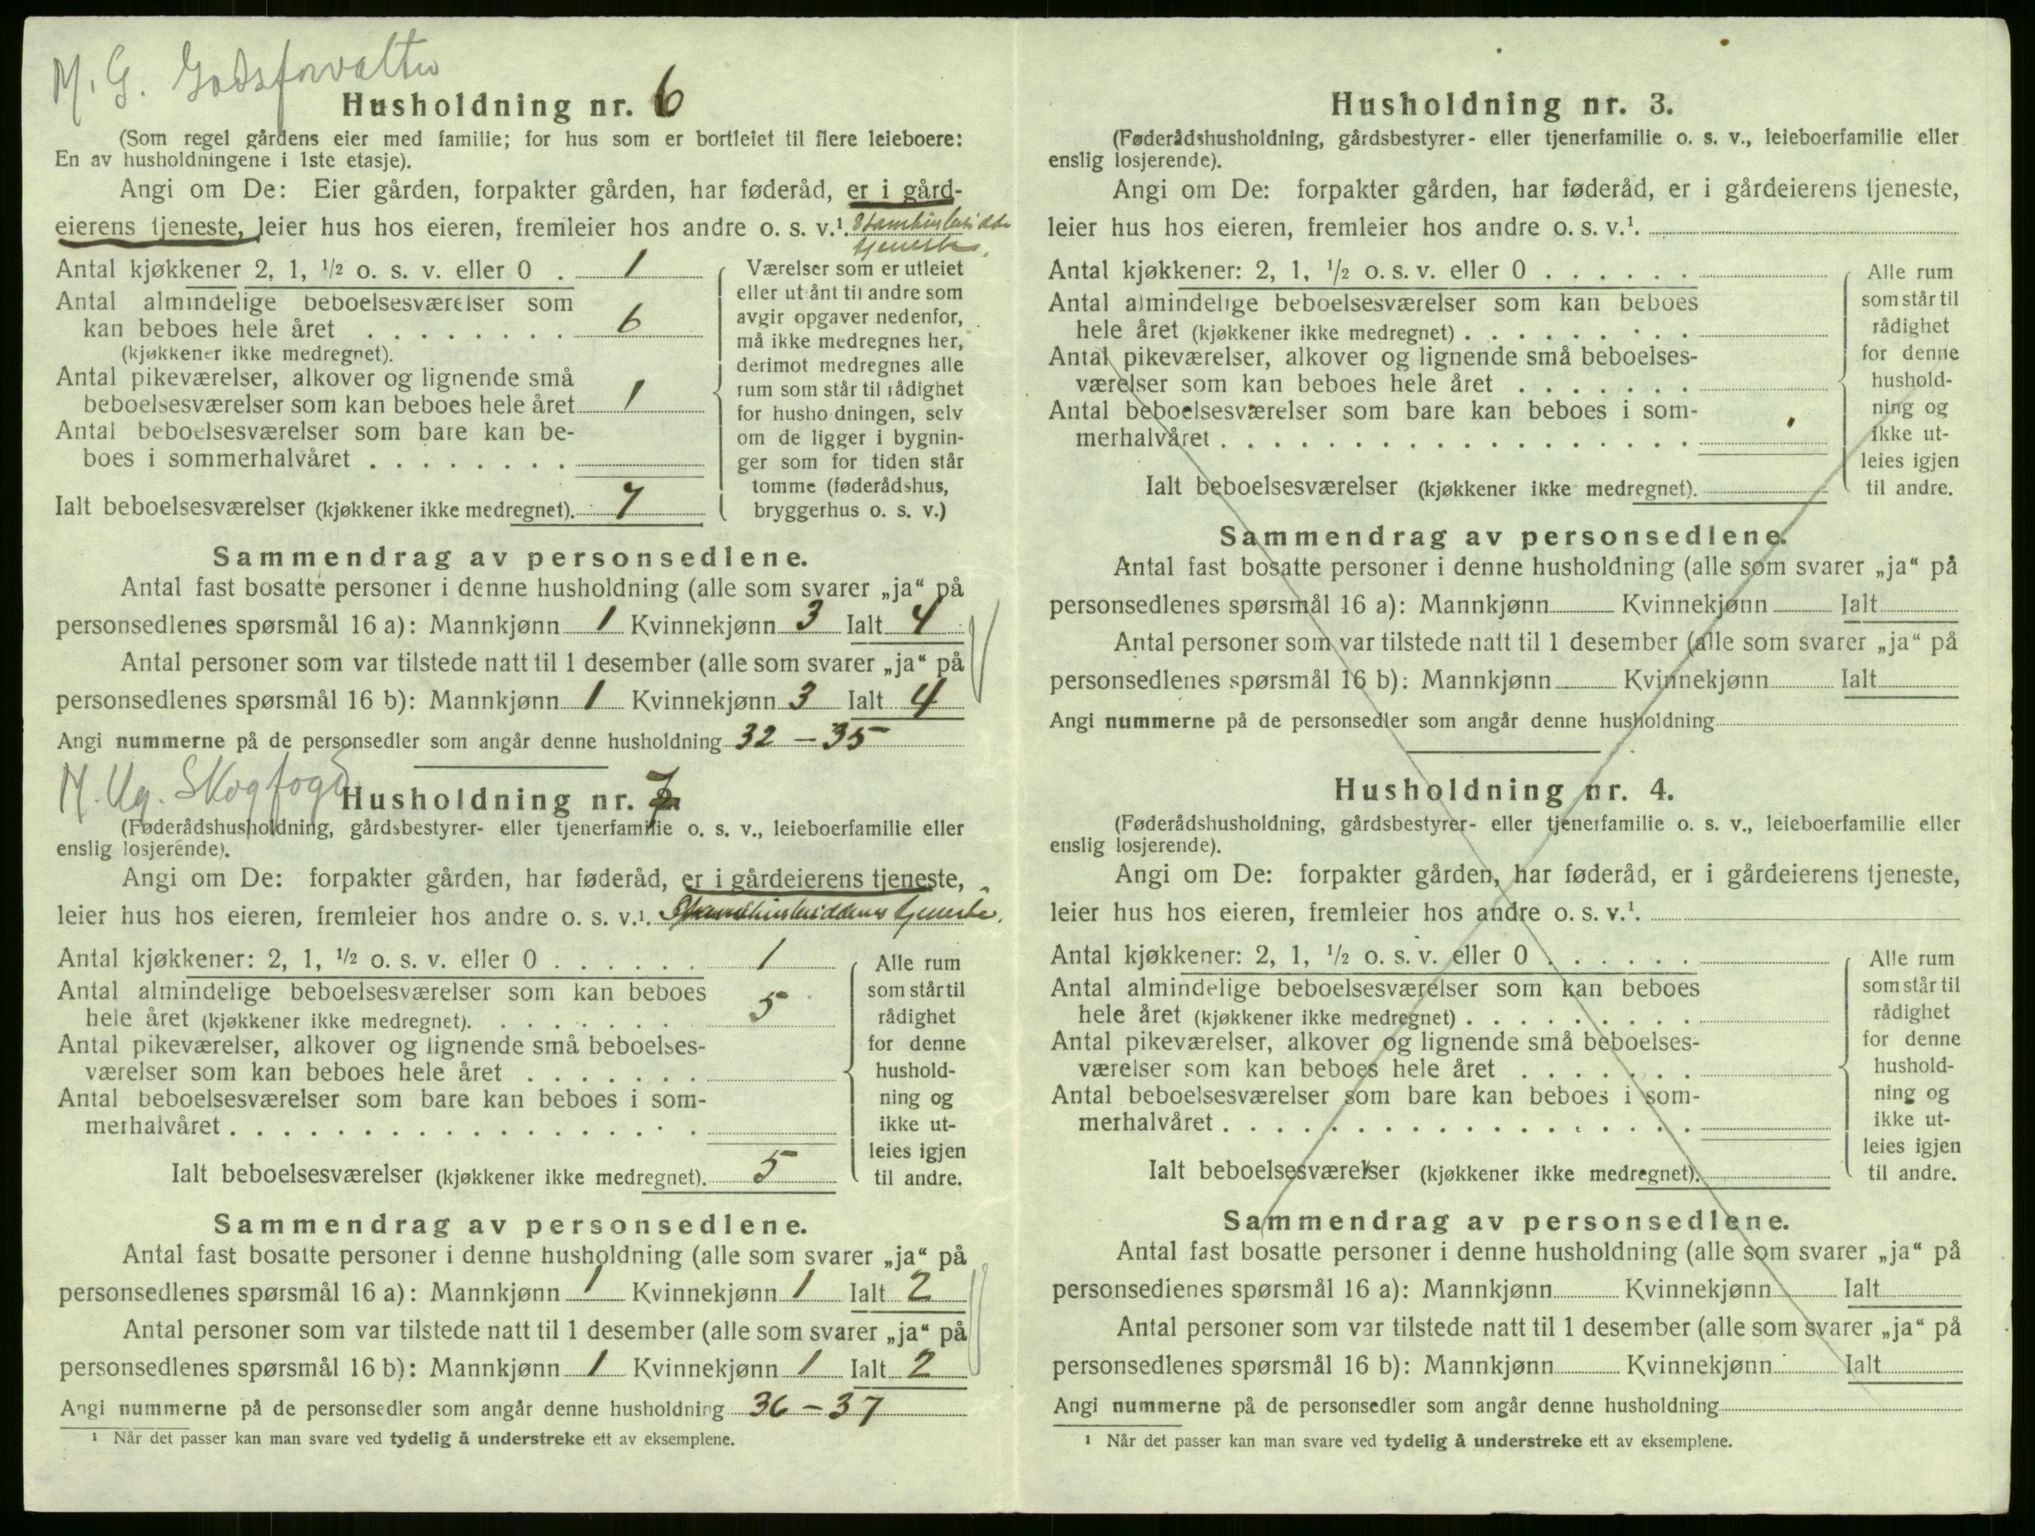 M. G. Godsforvalter
Husholdning nr. 6
(Som regel gårdens eier med familie; for hus som er bortleiet til flere leieboere:
En av husholdningene i 1ste etasje).
Angi om De: Eier gården, forpakter gården, har føderåd, er i gård-
eierens tjeneste, leier hus hos eieren, fremleier hos andre o. s. v.¹
tjeneste.
Antal kjøkkener 2, 1, ½ o. s. v. eller 0 . 1
Antal almindelige beboelsesværelser som
kan beboes hele året . . . . . . . . 6
(kjøkkener ikke medregnet).
Antal pikeværelser, alkover og lignende små
beboelsesværelser som kan beboes hele året 1
Antal beboelsesværelser som bare kan be-
boes i sommerhalvåret . . . . . . . .
Ialt beboelsesværelser (kjøkkener ikke medregnet). 7
Værelser som er utleiet
eller utlånt til andre som
avgir opgaver nedenfor,
må ikke medregnes her,
derimot medregnes alle
rum som står til rådighet
for husholdningen, selv
om de ligger i bygnin-
ger som for tiden står
tomme (føderådshus,
bryggerhus o. s. v.)
Sammendrag av personsedlene.
Antal fast bosatte personer i denne husholdning (alle som svarer „ja“ på
personsedlenes spørsmål 16 a): Mannkjønn 1 Kvinnekjønn 3 Ialt 4
Antal personer som var tilstede natt til 1 desember (alle som svarer „ja“ på
personsedlenes spørsmål 16 b): Mannkjønn 1 Kvinnekjønn 3 Ialt 4
Angi nummerne på de personsedler som angår denne husholdning 32 – 35
M. Ug. Skogfogd
Husholdning nr. 7
(Føderådshusholdning, gårdsbestyrer- eller tjenerfamilie o. s. v., leieboerfamilie eller
enslig losjerende).
Angi om De: forpakter gården, har føderåd, er i gårdeierens tjeneste,
leier hus hos eieren, fremleier hos andre o. s. v.¹. tjeneste.
Antal kjøkkener: 2, 1, ½ o. s. v. eller 0 . . . . . . 1
Antal almindelige beboelsesværelser som kan beboes
hele året (kjøkkener ikke medregnet). . . . . . . . 5
Antal pikeværelser, alkover og lignende små beboelses-
værelser som kan beboes hele året . . . . . . .
Antal beboelsesværelser som bare kan beboes i som-
merhalvåret . . . . . . . . . . . . . . . . . .
Ialt beboelsesværelser (kjøkkener ikke medregnet). 5
Alle rum
som står til
rådighet
for denne
hushold-
ning og
ikke ut-
leies igjen
til andre.
Sammendrag av personsedlene.
Antal fast bosatte personer i denne husholdning (alle som svarer „ja“ på
personsedlenes spørsmål 16 a): Mannkjønn 1 Kvinnekjønn 1 Ialt 2
Antal personer som var tilstede natt til 1 desember (alle som svarer „ja“ på
personsedlenes spørsmål 16 b): Mannkjønn 1 Kvinnekjønn 1 Ialt 2
Angi nummerne på de personsedler som angår denne husholdning 36 – 37
¹ Når det passer kan man svare ved tydelig å understreke ett av eksemplene.
Husholdning nr. 3.
(Føderådshusholdning, gårdsbestyrer- eller tjenerfamilie o. s. v., leieboerfamilie eller
enslig losjerende).
Angi om De: forpakter gården, har føderåd, er i gårdeierens tjeneste,
leier hus hos eieren, fremleier hos andre o. s. v.¹.
Antal kjøkkener: 2, 1, ½ o. s. v. eller 0 . . . . . .
Antal almindelige beboelsesværelser som kan beboes
hele året (kjøkkener ikke medregnet) . . . . . . . . .
Antal pikeværelser, alkover og lignende små beboelses-
værelser som kan beboes hele året . . . . . . .
Antal beboelsesværelser som bare kan beboes i som-
merhalvåret . . . . . . . . . . . . . . . . . .
Ialt beboelsesværelser (kjøkkener ikke medregnet).
Alle rum
som står til
rådighet
for denne
hushold-
ning og
ikke ut-
leies igjen
til andre.
Sammendrag av personsedlene.
Antal fast bosatte personer i denne husholdning (alle som svarer „ja“ på
personsedlenes spørsmål 16 a): Mannkjønn Kvinnekjønn Ialt
Antal personer som var tilstede natt til 1 desember (alle som svarer „ja“ på
personsedlenes spørsmål 16 b): Mannkjønn Kvinnekjønn Ialt
Angi nummerne på de personsedler som angår denne husholdning
Husholdning nr. 4.
(Føderådshusholdning, gårdsbestyrer- eller tjenerfamilie o. s. v., leieboerfamilie eller
enslig losjerende).
Angi om De: forpakter gården, har føderåd, er i gårdeierens tjeneste,
leier hus hos eieren, fremleier hos andre o. s. v.¹.
Antal kjøkkener: 2, 1, ½ o. s. v. eller 0 . . . . . .
Antal almindelige beboelsesværelser som kan beboes
hele året (kjøkkener ikke medregnet) . . . . . . . . .
Antal pikeværelser, alkover og lignende små beboelses-
værelser som kan beboes hele året . . . . . . .
Antal beboelsesværelser som bare kan beboes i som-
merhalvåret . . . . . . . . . . . . . . . . . .
Ialt beboelsesværelser (kjøkkener ikke medregnet).
Alle rum
som står til
rådighet
for denne
hushold-
ning og
ikke ut-
leies igjen
til andre.
Sammendrag av personsedlene.
Antal fast bosatte personer i denne husholdning (alle som svarer „ja“ på
personsedlenes spørsmål 16 a): Mannkjønn Kvinnekjønn Ialt
Antal personer som var tilstede natt til 1 desember (alle som svarer „ja“ på
personsedlenes spørsmål 16 b): Mannkjønn Kvinnekjønn Ialt
Angi nummerne på de personsedler som angår denne husholdning
¹ Når det passer kan man svare ved tydelig å understreke ett av eksemplene.